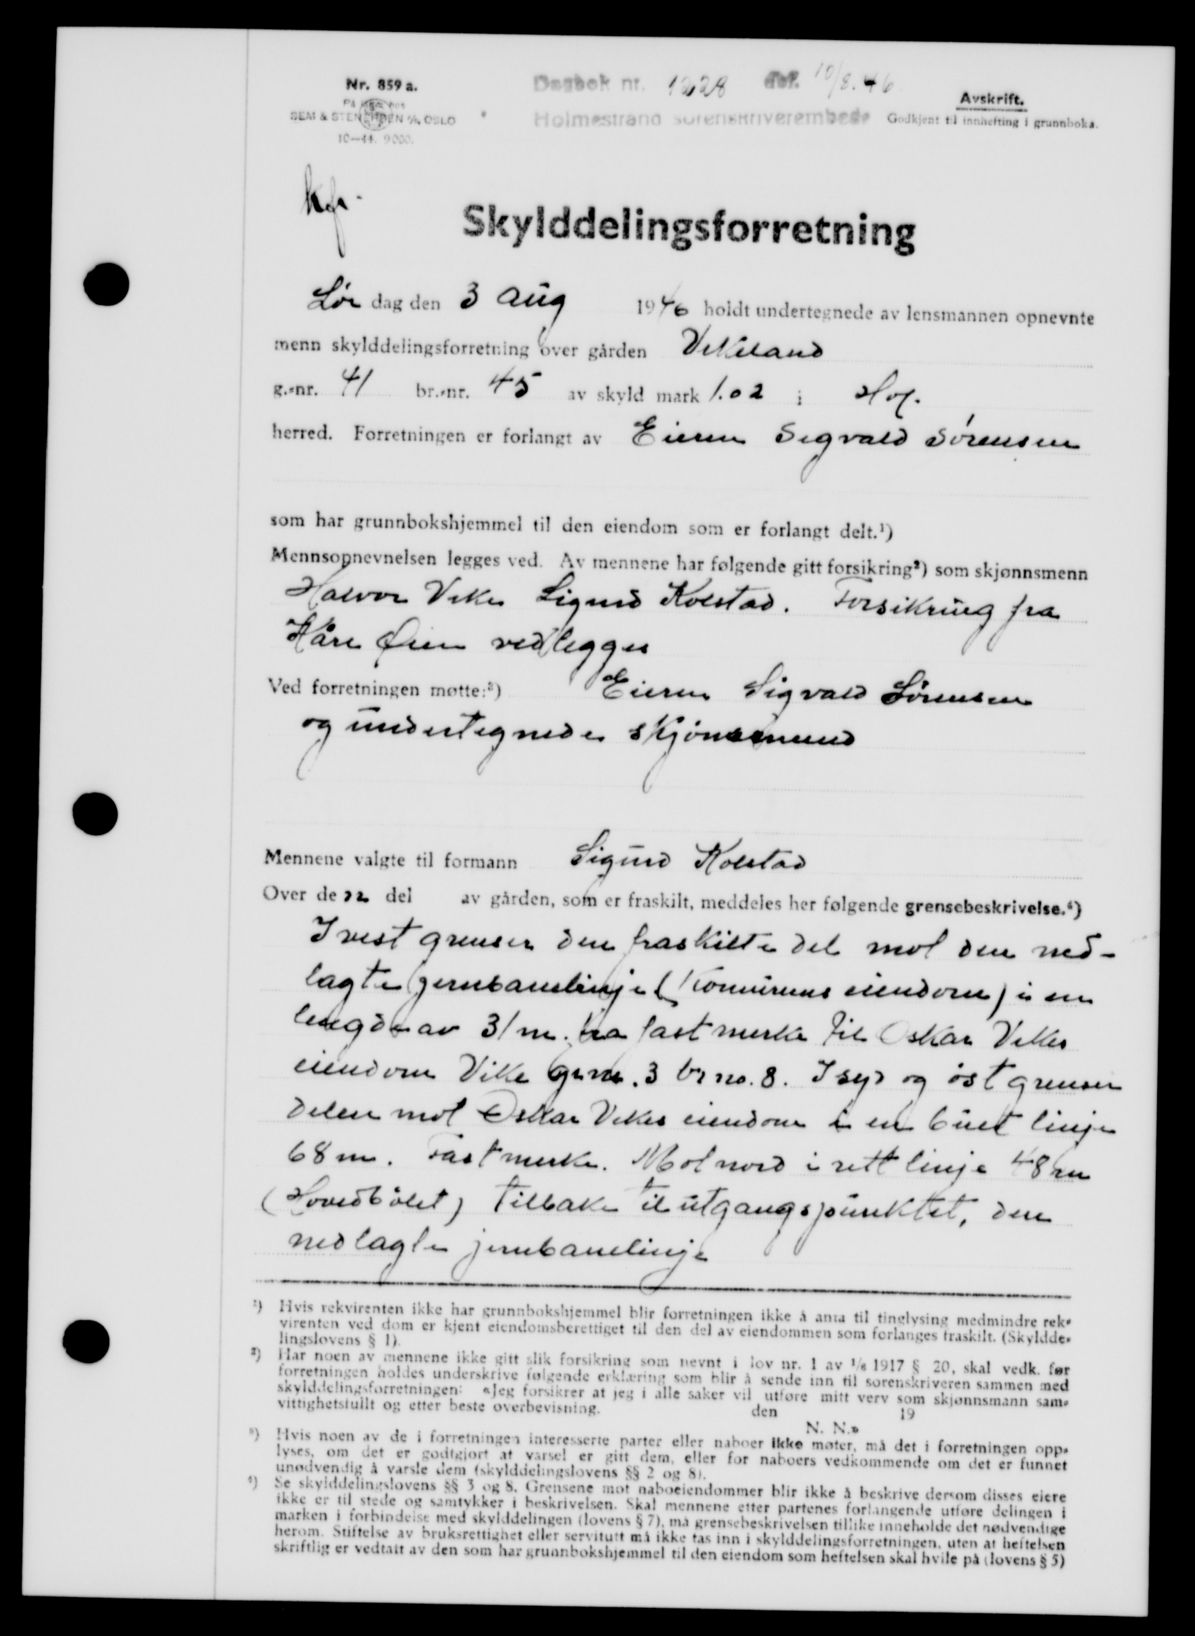 Nr. 859 a.
SEM & STENERSEN A/S, OSLO
10—44. 9000.
Dagbok nr. 1228 def. 10/8.46
Holmestrand sorenskriverembede
Avskrift.
Godkjent til innhefting i grunnboka.
Skylddelingsforretning
Lør dag den 3 Aug 1946 holdt undertegnede av lensmannen opnevnte
menn skylddelingsforretning over gården Vikeland
g.-nr. 41 br.-nr. 45 av skyld mark 1.02 i Hof.
herred. Forretningen er forlangt av Eieren Sigvald Sørensen
som har grunnbokshjemmel til den eiendom som er forlangt delt.¹)
Mennsopnevnelsen legges ved. Av mennene har følgende gitt forsikring²) som skjønnsmenn
Halvor Vike Sigurd Kolstad. Forsikring fra
Kåre Øien vedlegges
Ved forretningen møtte:³) Eieren Sigvald Sørensen
og undertegnede skjønnsmend
Mennene valgte til formann Sigurd Kolstad
Over de n del av gården, som er fraskilt, meddeles her følgende grensebeskrivelse.⁴)
I vest grenser den fraskilte del mot den ned-
lagte jernbanelinje (Komunens eiendom) i en
lengde av 31 m. fra fastmerke til Oskar Vikes
eiendom Vike grnr. 3 brno. 8. I syd og øst grenser
delen mot Oskar Vikes eiendom i en buet linje
68 m. Fastmerke. Mot nord i rett linje 48 m
(Hovedbølet) tilbake til utgangspunktet, den
nedlagte jernbanelinje
¹) Hvis rekvirenten ikke har grunnbokshjemmel blir forretningen ikke å anta til tinglysing medmindre rek-
virenten ved dom er kjent eiendomsberettiget til den del av eiendommen som forlanges fraskilt. (Skyldde-
lingslovens § 1).
²) Har noen av mennene ikke gitt slik forsikring som nevnt i lov nr. 1 av ¹/₆ 1917 § 20, skal vedk. før
forretningen holdes underskrive følgende erklæring som blir å sende inn til sorenskriveren sammen med
skylddelingsforretningen: «Jeg forsikrer at jeg i alle saker vil utføre mitt verv som skjønnsmann sam-
vittighetsfullt og etter beste overbevisning. den 19
N. N.»
³) Hvis noen av de i forretningen interesserte parter eller naboer ikke møter, må det i forretningen opp-
lyses, om det er godtgjort at varsel er gitt dem, eller for naboers vedkommende om det er funnet
unødvendig å varsle dem (skylddelingslovens §§ 2 og 8).
⁴) Se skylddelingslovens §§ 3 og 8. Grensene mot naboeiendommer blir ikke å beskrive dersom disses eiere
ikke er til stede og samtykker i beskrivelsen. Skal mennene etter partenes forlangende utføre delingen i
marken i forbindelse med skylddelingen (lovens § 7), må grensebeskrivelsen tillike inneholde det nødvendige
herom. Stiftelse av bruksrettighet eller servitutt må ikke tas inn i skylddelingsforretningen, uten at heftelsen
skriftlig er vedtatt av den som har grunnbokshjemmel til den eiendom som heftelsen skal hvile på (lovens § 5)